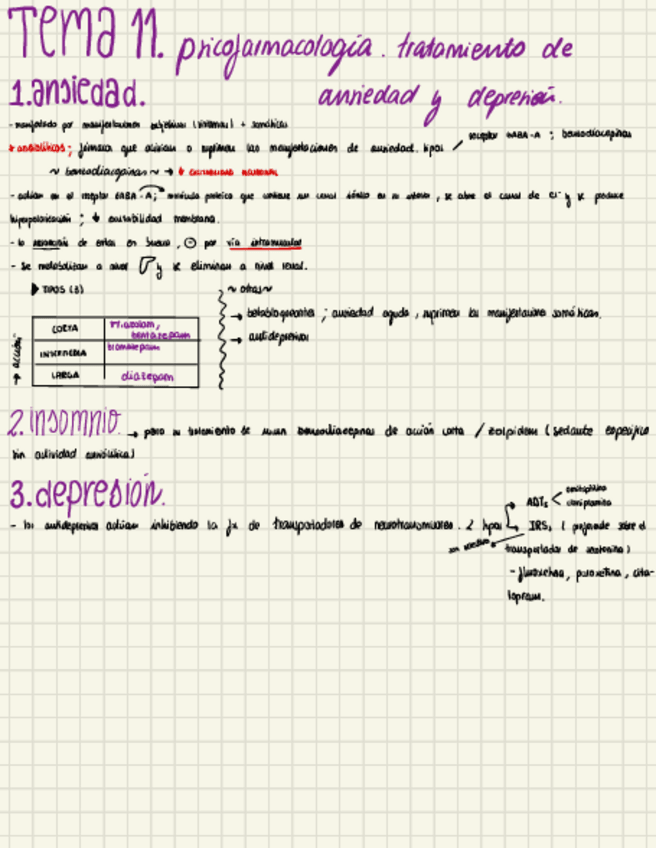 Tema 11. psicofarmacología. tratamiento de
ansiedad y depresión.
1. ansiedad.
- manifestado por manifestaciones subjetivas (síntomas) + somáticas
* ansiolíticos; fármaco que alivian o suprimen las manifestaciones de ansiedad. tipos / receptor GABA-A; benzodiacepinas
~ benzodiacepinas ~ → ↓ excitabilidad neuronal
- actúan en el receptor GABA-A; molécula proteica que contiene un canal iónico en su interior, se abre el canal de Cl⁻ y se produce
hiperpolarización; ↓ excitabilidad membrana.
- la absorción de estas es buena, ⊖ por vía intramuscular
- se metabolizan a nivel y se eliminan a nivel renal.
▶ TIPOS (3)
→ acción
CORTA triazolam,
INTERMEDIA
LARGA diazepam
~ otras ~
→ betabloqueantes; ansiedad aguda, suprimen las manifestaciones somáticas.
→ antidepresivos
2. insomnio → para su tratamiento se usan benzodiacepinas de acción corta / zolpidem (sedante específico
sin actividad ansiolítica)
3. depresión.
- los antidepresivos actúan inhibiendo la fx de transportadores de neurotransmisores. 2 tipos
ADTs < amitriptilina
IRSs (preferente sobre el
transportador de serotonina)
- fluoxetina, paroxetina, cita-
lopram.